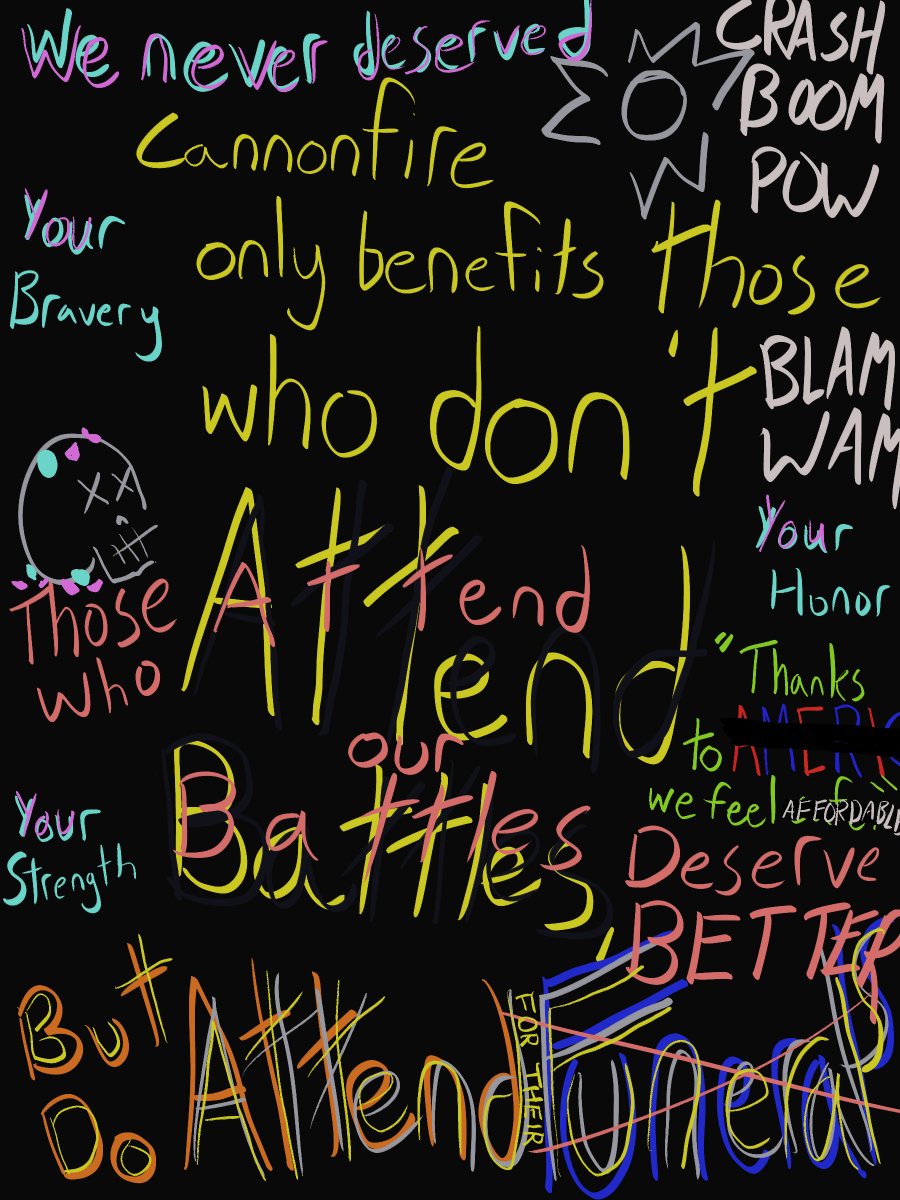 We never deserved
CRASH
BOOM
POW
Cannonfire
Your
Bravery
only benefits those
who don't
BLAM
WAM
Attend
Attend
Your
Honor
Those
who
"Thanks
to AMERIC
we feel
AFFORDABLE
our
Battles,
Battles
Your
Strength
Deserve
BETTER
But
Do
Attend
FOR THEIR
Funerals